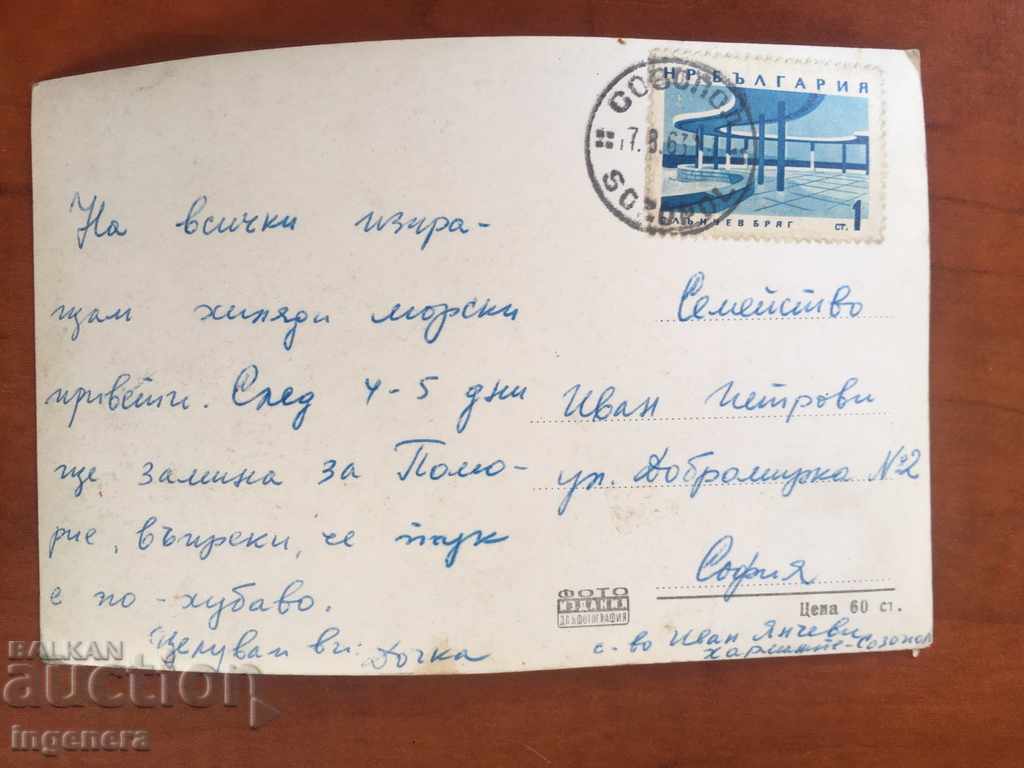 Н Р БЪЛГАРИЯ
СОЗОПОЛ
7.8.63
SOZOPOL
СЛЪНЧЕВ БРЯГ СТ. 1
На всички изпра-
щам хиляди морски
привети. След 4-5 дни
ще замина за Помо-
рие, въпреки, че тук
е по-хубаво.
Целувам ви: Дочка
Семейство
Иван Петрови
ул. Добромирка №2
София
ФОТО
ИЗДАНИЯ
ДК БЪФОТОГРАФИЯ
Цена 60 ст.
с-во Иван Янчеви
Харманите-Созопол
BALKAN
auction
ingenera